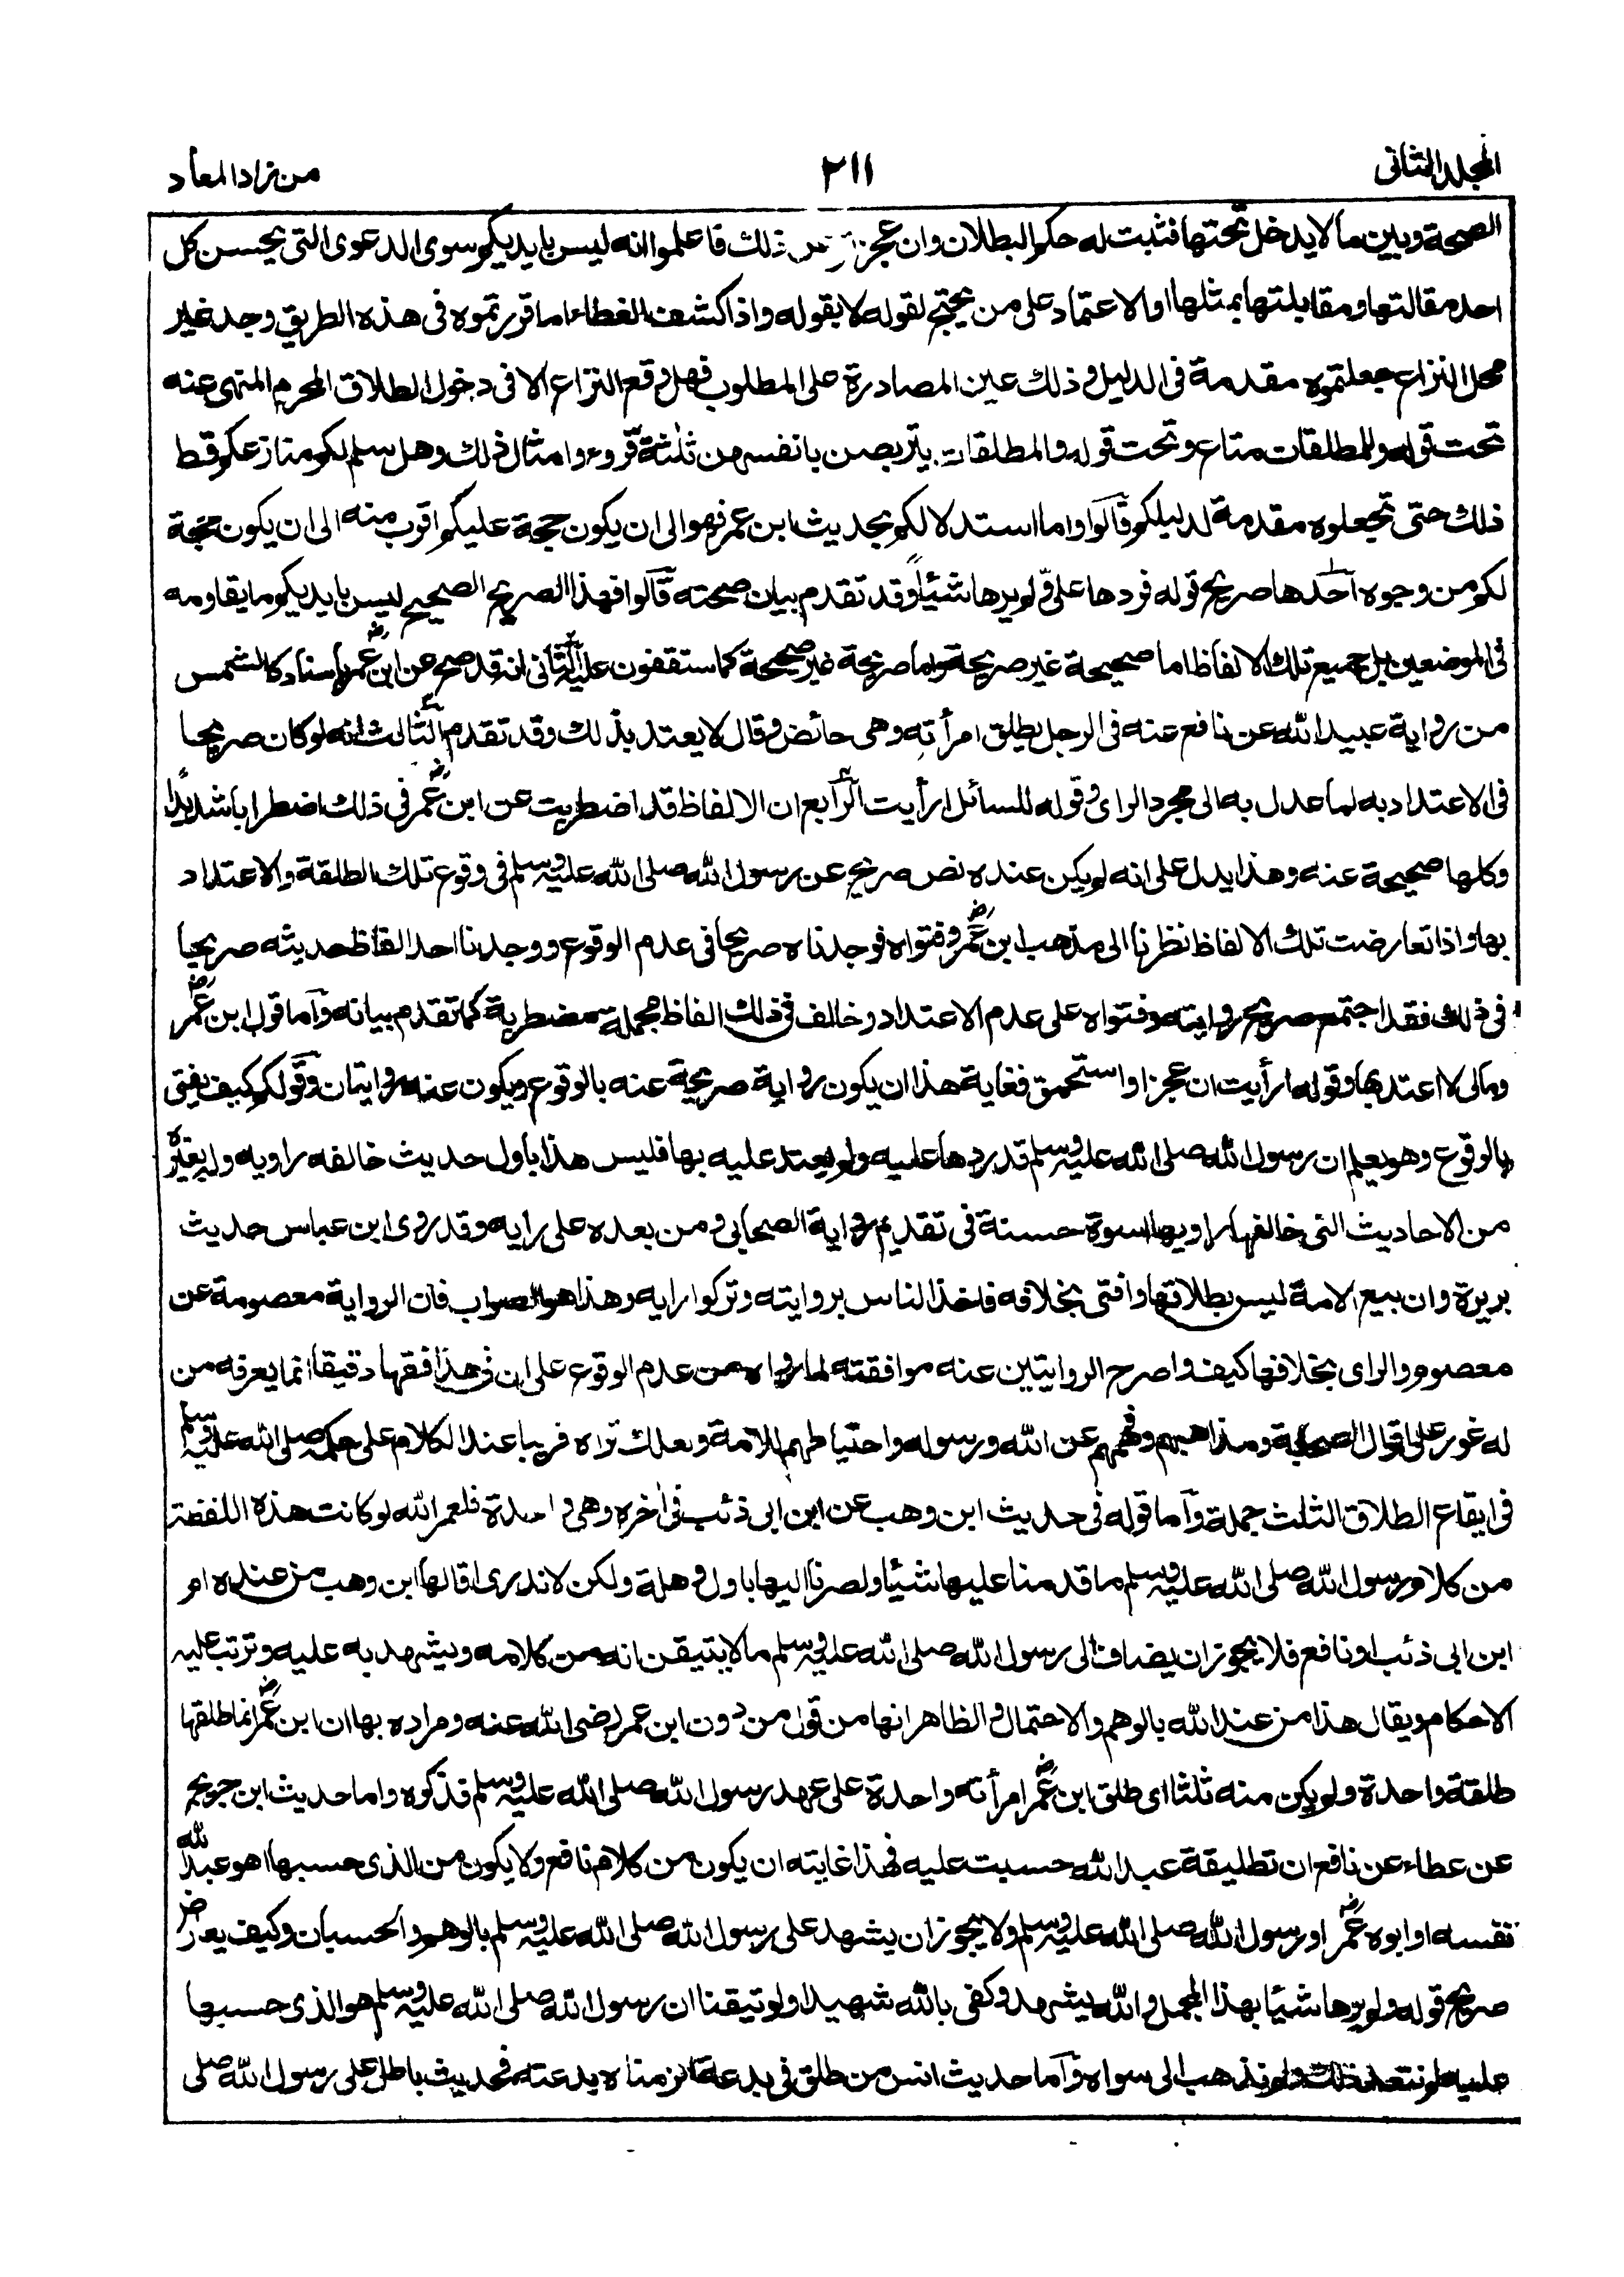 المجلد الثانى
٢١١
من زاد المعاد
الصحيحة وبين ما لا يدخل تحتها فتثبت له حكم البطلان وان عجزتم عن ذلك فاعلموا انه ليس بايديكم سوى الدعوى التى يحسن كل
احد مقالتها ومقابلتها بمثلها او الاعتماد على من يحتج لقوله لا بقوله واذا كشف الغطاء عما قررتموه فى هذه الطريق وجد غير
محل النزاع جعلتموه مقدمة فى الدليل وذلك عين المصادرة على المطلوب فهل وقع النزاع الا فى دخول الطلاق المحرم المنهى عنه
تحت قوله وللمطلقات متاع وتحت قوله والمطلقات يتربصن بانفسهن ثلثة قروء وامثال ذلك وهل سلم لكم منازعكم قط
ذلك حتى تجعلوه مقدمة لدليلكم قالوا واما استدلالكم بحديث ابن عمر فهو الى ان يكون حجة عليكم اقرب منه الى ان يكون حجة
لكم من وجوه احدها صريح قوله فردها علىّ ولم يرها شيئا وقد تقدم بيان صحته قالوا فهذا الصريح الصحيح ليس بايديكم ما يقاومه
فى الموضعين بل جميع تلك الالفاظ اما صحيحة غير صريحة واما صريحة غير صحيحة كما ستقفون عليه الثانى انه قد صح عن ابن عمر باسناد كالشمس
من رواية عبيد الله عن نافع عنه فى الرجل يطلق امرأته وهى حائض قال لا يعتد بذلك وقد تقدم الثالث انه لو كان صريحا
فى الاعتداد به لما عدل به الى مجرد الراى وقوله للسائل ارأيت الرابع ان الالفاظ قد اضطربت عن ابن عمر فى ذلك اضطرابا شديدا
وكلها صحيحة عنه وهذا يدل على انه لم يكن عنده نص صريح عن رسول الله صلى الله عليه وسلم فى وقوع تلك الطلقة والاعتداد
بها واذا تعارضت تلك الالفاظ نظرنا الى مذهب ابن عمر وفتواه فوجدناه صريحا فى عدم الوقوع ووجدنا احد الفاظ حديثه صريحا
فى ذلك فقد اجتمع صريح روايته وفتواه على عدم الاعتداد وخالف فى ذلك الفاظ مجملة مضطربة كما تقدم بيانه واما قول ابن عمر
ومالى لا اعتد بها وقوله ارأيت ان عجز او استحمق فغاية هذا ان يكون رواية صريحة عنه بالوقوع ويكون عنه روايتان وقولكم كيف يفتى
بالوقوع وهو يعلم ان رسول الله صلى الله عليه وسلم قد ردها عليه ولم يعتد عليه بها فليس هذا باول حديث خالفه راويه وله بغيره
من الاحاديث التى خالفها راويها اسوة حسنة فى تقديم رواية الصحابى ومن بعده على رايه وقد روى ابن عباس حديث
بريرة وان بيع الامة ليس بطلاقها وافتى بخلافه فاخذ الناس بروايته وتركوا رايه وهذا هو الصواب فان الرواية معصومة عن
معصوم والراى بخلافها كيف واصرح الروايتين عنه موافقته لما رواه من عدم الوقوع على ان فى هذا فقها دقيقا انما يعرفه من
له غور على اقوال الصحابة ومذاهبهم وفهمهم عن الله ورسوله واحتياطهم للامة ولعلك تراه قريبا عند الكلام على حكمه صلى الله عليه وسلم
فى ايقاع الطلاق الثلث جملة واما قوله فى حديث ابن وهب عن ابن ابى ذئب فى اخره وهى واحدة فلعمر الله لو كانت هذه اللفظة
من كلام رسول الله صلى الله عليه وسلم ما قدمنا عليها شيئا ولصرنا اليها باول وهلة ولكن لا ندرى اقالها ابن وهب من عنده ام
ابن ابى ذئب او نافع فلا يجوز ان يضاف الى رسول الله صلى الله عليه وسلم ما لا يتيقن انه من كلامه ويشهد به عليه وترتب عليه
الاحكام ويقال هذا من عند الله بالوهم والاحتمال والظاهر انها من قول من دون ابن عمر رضى الله عنه ومراده بها ان ابن عمر انما طلقها
طلقة واحدة ولم يكن منه ثلثا اى طلق ابن عمر امرأته واحدة على عهد رسول الله صلى الله عليه وسلم فذكره واما حديث ابن جريج
عن عطاء عن نافع ان تطليقة عبد الله حسبت عليه فهذا غايته ان يكون من كلام نافع ولا يكون من الذى حسبها اهو عبد الله
نفسه او ابوه عمر او رسول الله صلى الله عليه وسلم ولا يجوز ان يشهد على رسول الله صلى الله عليه وسلم بالوهم والحسبان وكيف يعارض
صريح قوله ولم يرها شيئا بهذا المجمل والله يشهد وكفى بالله شهيدا ولو تيقنا ان رسول الله صلى الله عليه وسلم هو الذى حسبها
عليه لم نتعد ذلك ولم نذهب الى سواه واما حديث انس من طلق فى بدعة الزمناه بدعته فحديث باطل على رسول الله صلى